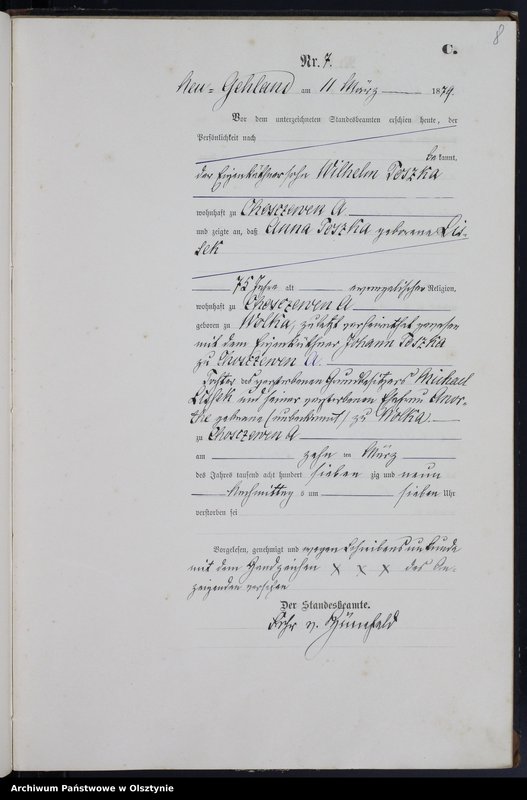 8
C.
Nr. 7.
Neu-Gehland am 11 März 1879.
Vor dem unterzeichneten Standesbeamten erschien heute, der
Persönlichkeit nach
bekannt,
der Eigenkäthnersohn Wilhelm Toszka
wohnhaft zu Choszewen A
und zeigte an, daß Anna Toszka geborene Lis-
sek
75 Jahre alt evangelischer Religion,
wohnhaft zu Choszewen A
geboren zu Wolka, zuletzt verheirathet gewesen
mit dem Eigenkäthner Johann Toszka
zu Choszewen A.
Tochter des verstorbenen Grundbesitzers Michael
Lissek und seiner verstorbenen Ehefrau
geborene (unbekannt) zu Wolka
zu Choszewen A
am zehn ten März
des Jahres tausend acht hundert sieben zig und neun
Nachmittag s um sieben Uhr
verstorben sei
Vorgelesen, genehmigt und wegen Schreibensunkunde
mit dem Handzeichen x x x des An-
zeigenden versehen
Der Standesbeamte.
Frhr v.
Archiwum Państwowe w Olsztynie